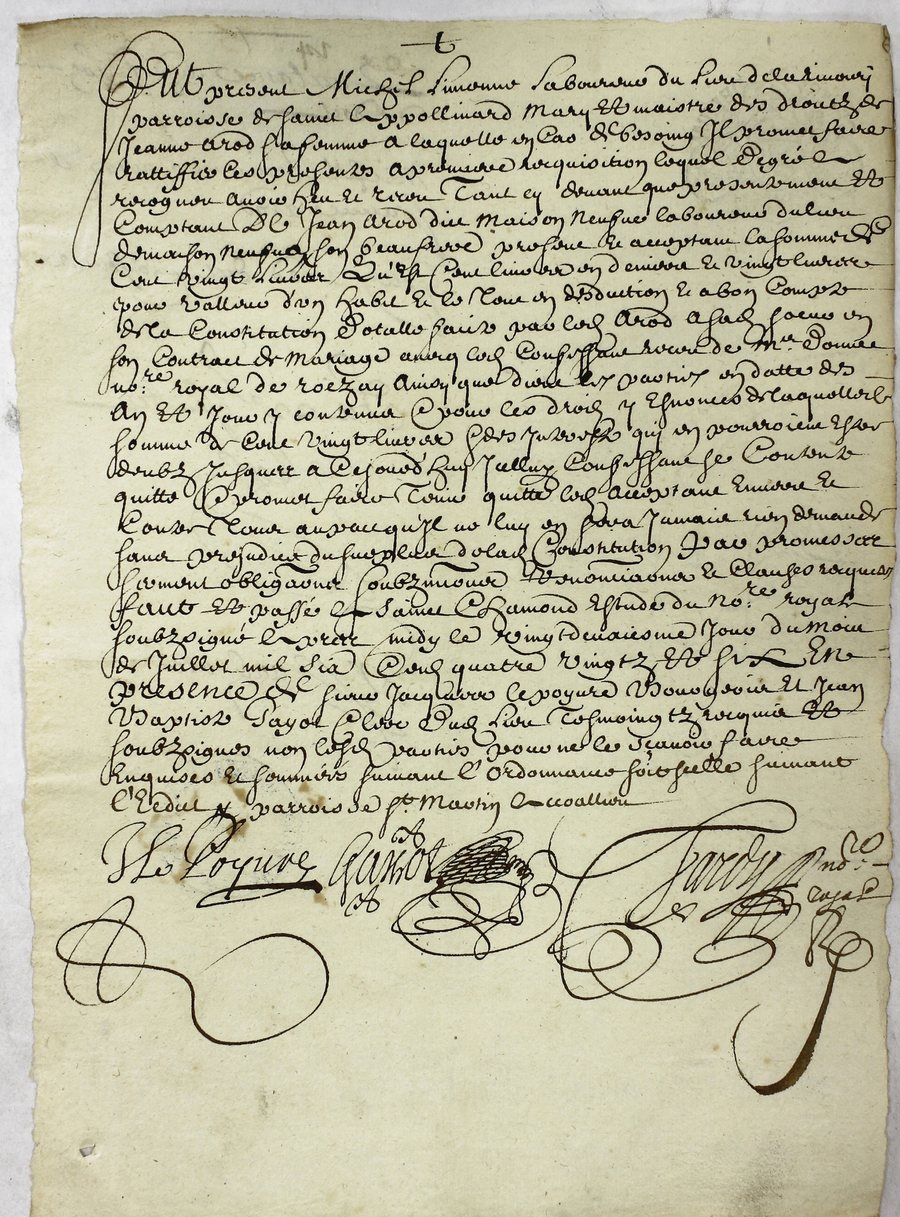 Fut present Michel Limonne laboureur du lieu de la
parroisse de sainct Appollinard mary et maistre des droictz de
Jeanne Arod sa femme a laquelle en cas de besoing Il promet faire
rattiffier les presentes a premiere requisition lequel de gré a
recogneu avoir heu et receu Tant cy devant que presentement et
Comptant de Jean Arod dit Maison Neufve laboureur du lieu
de maison neufve son beaufrere present et acceptant la somme de
Cent vingt livres Qu'est Cent livres en deniers et vingt livres
pour valleur d'un habit et le tout en deduction et a bon Compte
de la Constitution dotalle faicte par led Arod a sad soeur en
son Contract de Mariage avecq led Confessant receu de Me Donnet
nore royal de roezay Ainsy que dient les parties en datte des
An et Jour y contenus & pour les droictz y Enoncés de laquelle
somme de Cent vingt livres & des Interestz qui en pourroient Estre
deubz Jusques a Cejourd'huy Icelluy Confessant se Contente
quitte & promet faire Tenir quitte led Acceptant Envers et
Contre Tous auxpact qu'Il ne luy en sera Jamais rien demandé
sans prejudice du surplus de lad Constitution Par promesses
serment obligaons soubzmissions Renonciaons et Clauses requises
faict et passé a Sainct Chamond Estude du Nore royal
soubzsigné apres midy le vingt deuxiesme Jour du Mois
de Juillet mil six Centz quatre vingtz et six En
presence de sieur Jacques lepoyure Bourgeois Et Jean
Baptiste Gayot Clerc dud lieu Tesmoingtz requis et
soubzsignes non lesd parties pour ne le scavoir faire
Enquises et sommées suivant l'Ordonnance soit scellé suivant
l'Eedict parroisse St Martin Accoallieu
Le Poyure Gayot Hardy nore
royal